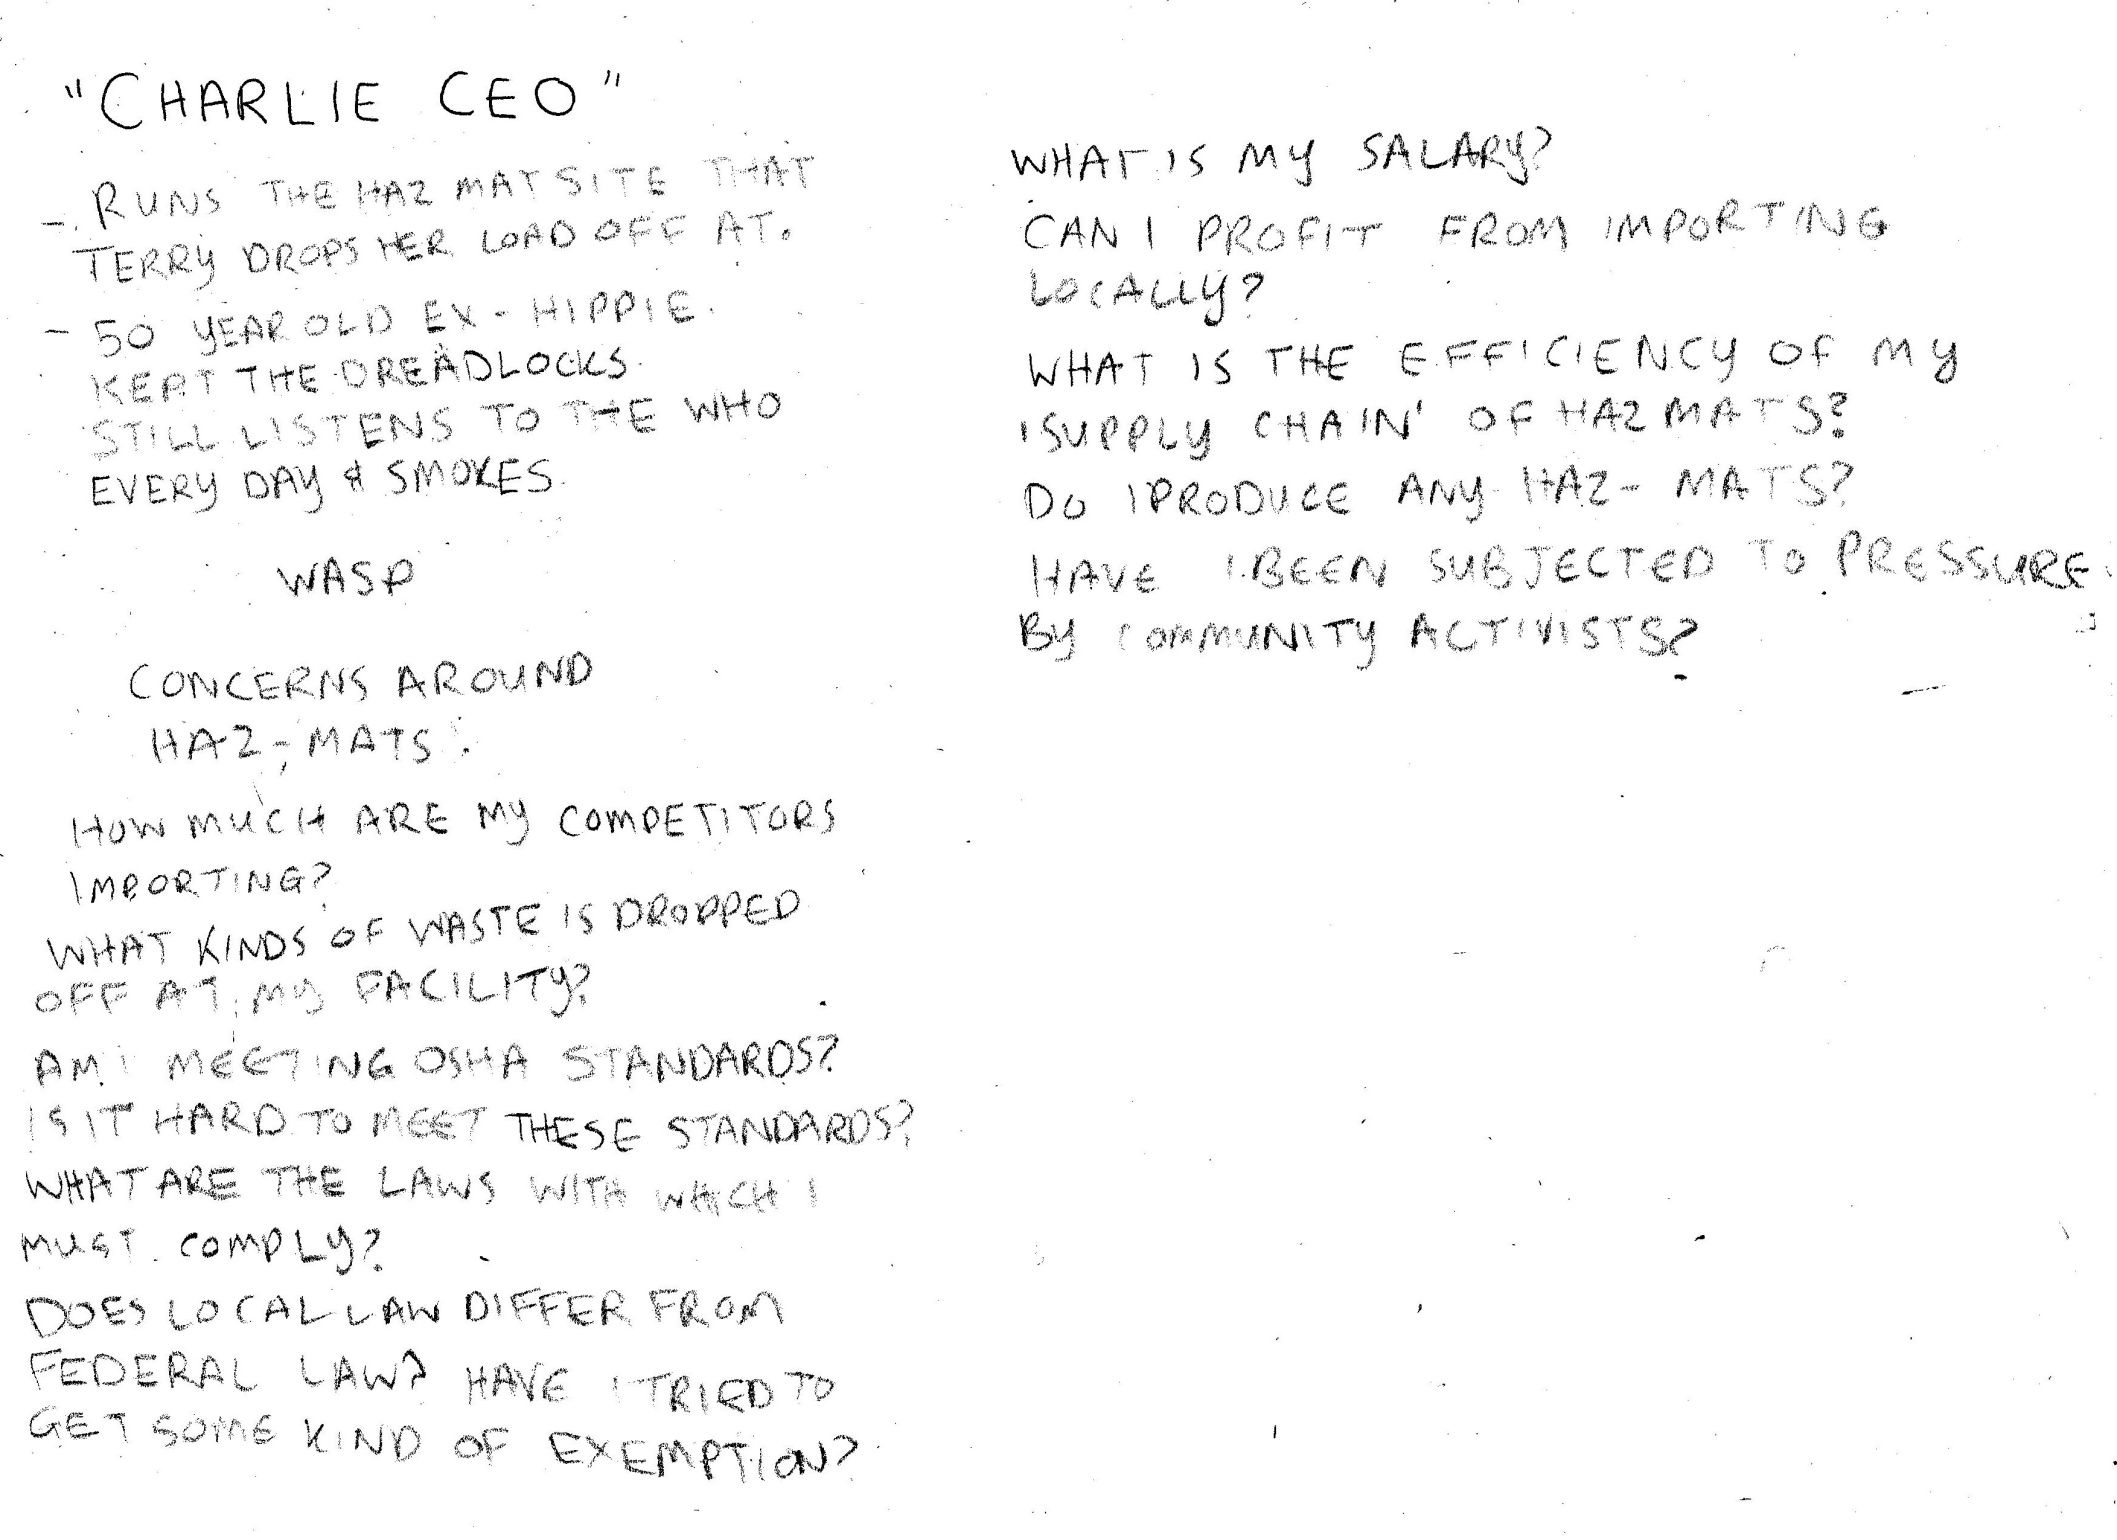 "CHARLIE CEO"
- RUNS THE HAZ MAT SITE THAT
TERRY DROPS HER LOAD OFF AT.
- 50 YEAR OLD EX-HIPPIE.
KEPT THE DREADLOCKS.
STILL LISTENS TO THE WHO
EVERY DAY & SMOKES.
WASP
CONCERNS AROUND
HAZ-MATS:
HOW MUCH ARE MY COMPETITORS
IMPORTING?
WHAT KINDS OF WASTE IS DROPPED
OFF AT MY FACILITY?
AM I MEETING OSHA STANDARDS?
IS IT HARD TO MEET THESE STANDARDS?
WHAT ARE THE LAWS WITH WHICH I
MUST COMPLY?
DOES LOCAL LAW DIFFER FROM
FEDERAL LAW? HAVE I TRIED TO
GET SOME KIND OF EXEMPTION?
WHAT IS MY SALARY?
CAN I PROFIT FROM IMPORTING
LOCALLY?
WHAT IS THE EFFICIENCY OF MY
'SUPPLY CHAIN' OF HAZMATS?
DO I PRODUCE ANY HAZ-MATS?
HAVE I BEEN SUBJECTED TO PRESSURE
BY COMMUNITY ACTIVISTS?